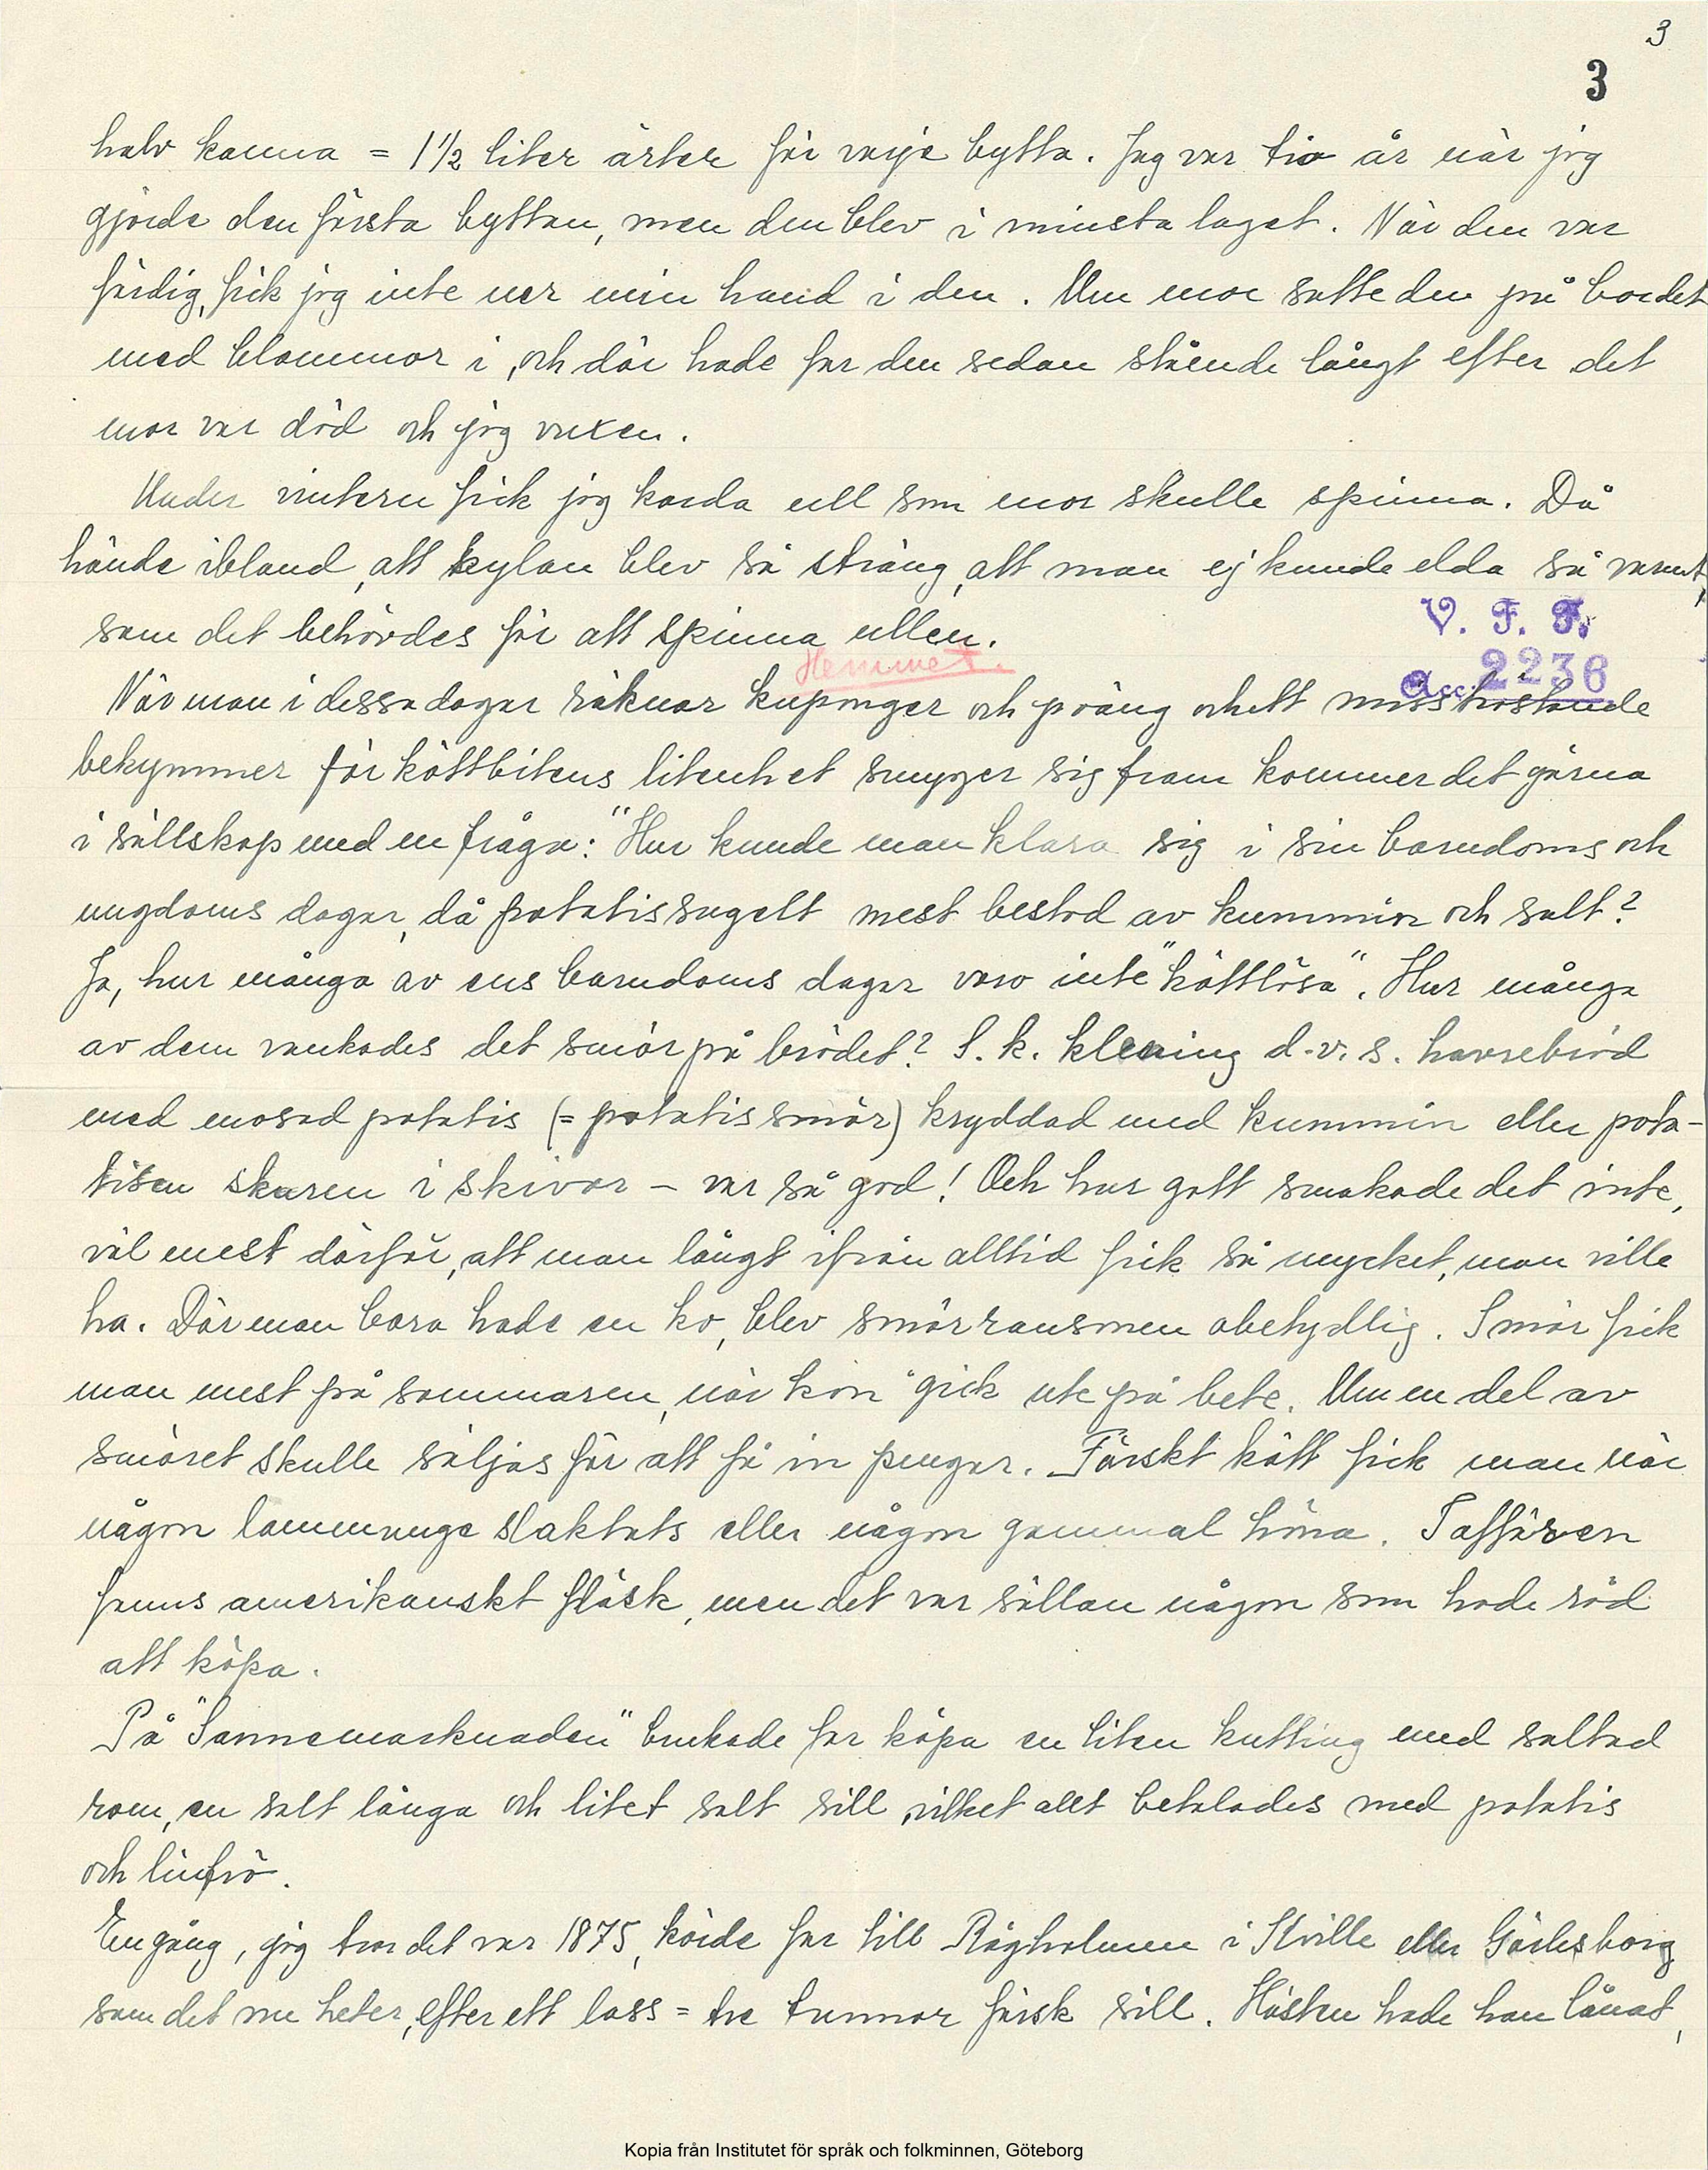 3
3
halv kanna = 1 1/2 liter ärter för varje bytta. Jag var tio år när jag
gjorde den första byttan, men den blev i minsta laget. När den var
färdig, fick jag inte ner min hand i den. Men mor satte den på bordet
med blommor i, och där hade far den sedan stående långt efter det
mor var död och jag vuxen.
Under vintern fick jag karda ull som mor skulle spinna. Då
hände ibland, att kylan blev så sträng, att man ej kunde elda så varmt,
som det behövdes för att spinna ullen.
V. F. F.
Hemmet.
Acc. 2236
När man i dessa dagar räknar kuponger och poäng och ett misströstande
bekymmer för köttbitens litenhet smyger sig fram kommer det gärna
i sällskap med en fråga: "Hur kunde man klara sig i sin barndoms och
ungdoms dagar, då potatissuglet mest bestod av kummin och salt?
Ja, hur många av ens barndoms dagar voro inte "köttlösa". Hur många
av dem vankades det smör på brödet? S. k. klening d.v.s. havrebröd
med mosad potatis (= potatissmör) kryddad med kummin eller pota-
tisen skuren i skivor – var så god! Och hur gott smakade det inte,
väl mest därför, att man långt ifrån alltid fick så mycket, man ville
ha. Där man bara hade en ko, blev smörransonen obetydlig. Smör fick
man mest på sommaren, när kon gick ute på bete. Men en del av
smöret skulle säljas för att få in pengar. Färskt kött fick man när
någon lammunge slaktats eller någon gammal höna. I affären
fanns amerikanskt fläsk, men det var sällan någon som hade råd
att köpa.
På "Sannemarknaden" brukade far köpa en liten kutting med saltad
rom, en salt långa och litet salt sill, vilket allt betalades med potatis
och linfrö.
En gång, jag tror det var 1875, körde far till Rågholmen i Kville eller Gerlesborg
som det nu heter, efter ett lass = tre tunnor färsk sill. Hästen hade han lånat,
Kopia från Institutet för språk och folkminnen, Göteborg